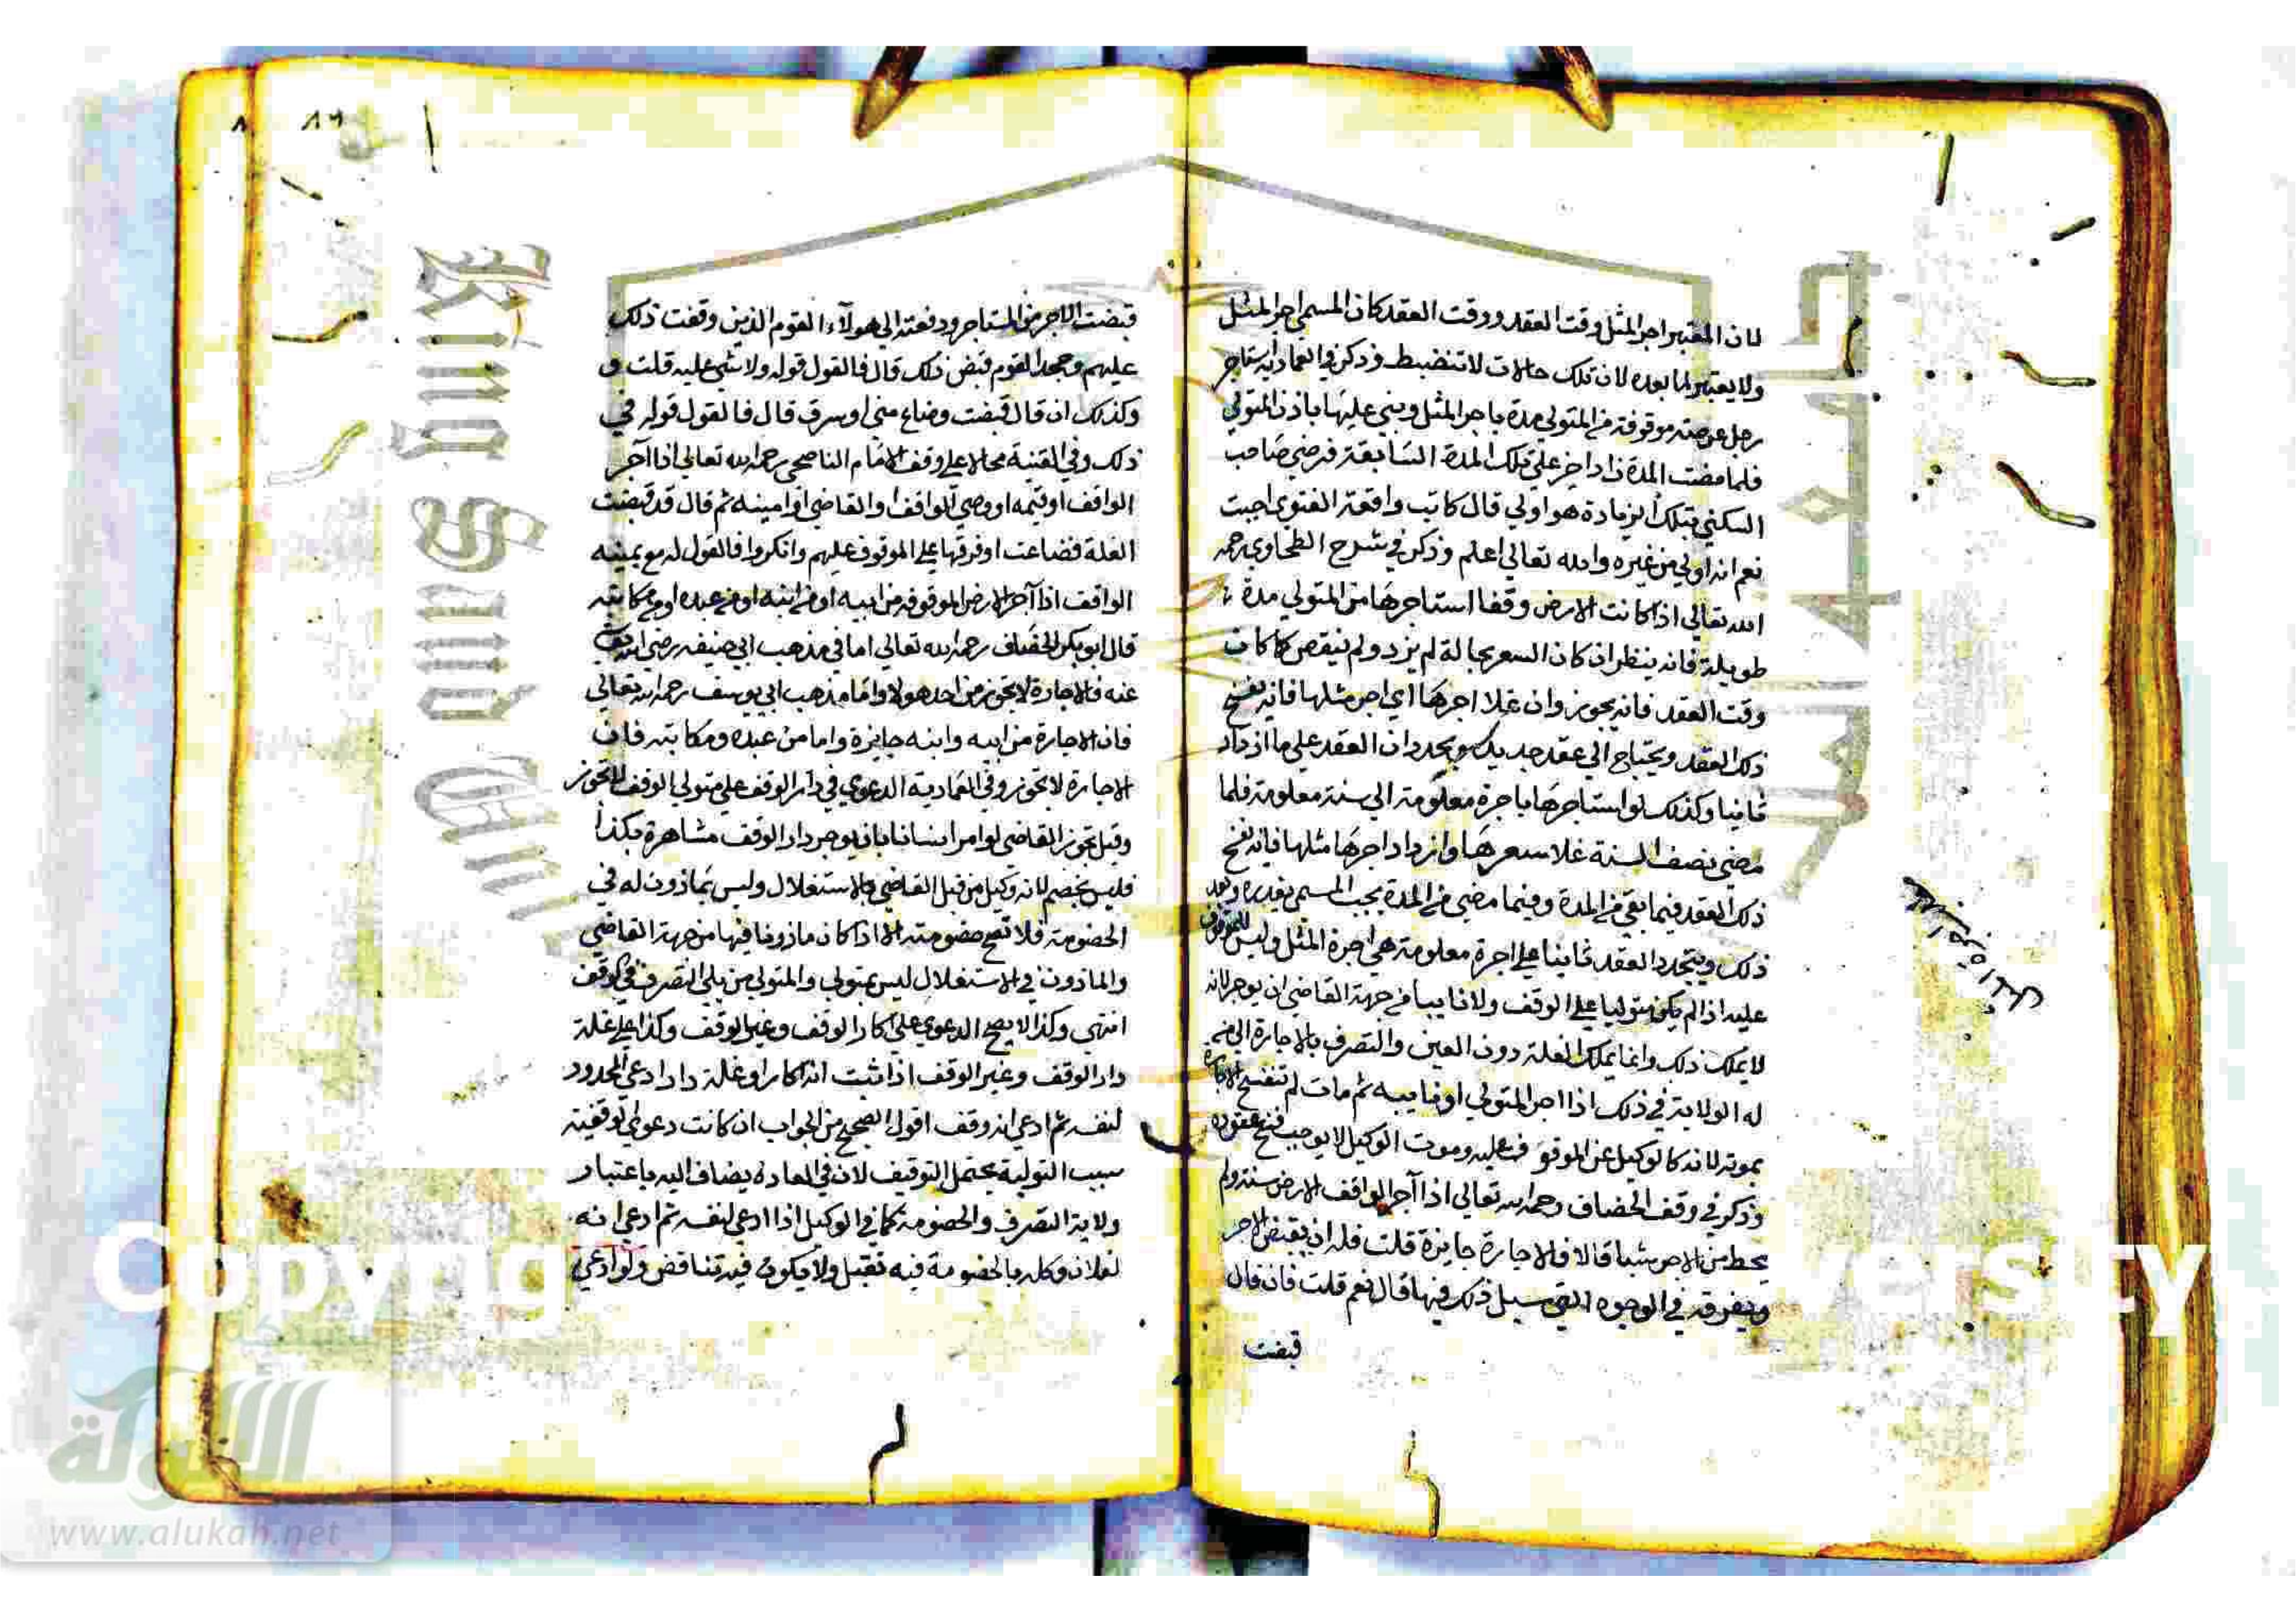 لان المعتبر اجر المثل وقت العقد ووقت العقد كان المسمى اجر المثل
ولا يعتبر لما بعده لان تلك حالات لا تنضبط وذكر في العمادية استاجر
رجل عرصة موقوفة من المتولي مدة باجر المثل وبني عليها باذن المتولي
فلما مضت المدة زاد اخر علي تلك المدة السابقة فرضي صاحب
السكني بتلك الزيادة هو اولي قال كاتب واقعة الفتوى اجبت
نعم انه اولي من غيره والله تعالي اعلم وذكر في شرح الطحاوي رحمه
الله تعالي اذا كانت الارض وقفا استاجرها من المتولي مدة
طويلة فانه ينظر ان كان السعر بحاله لم يزد ولم ينقص كما كان
وقت العقد فانه يجوز وان غلا اجرها اي اجر مثلها فانه يفسخ
ذلك العقد ويحتاج الي عقد جديد ويجددان العقد علي ما ازداد
ثانيا وكذلك لو استاجرها باجرة معلومة الي سنة معلومة فلما
مضي نصف السنة غلا سعرها وازداد اجرها مثلها فانه يفسخ
ذلك العقد فيما بقي من المدة وفيما مضي من المدة يجب المسمي بقدره وبعد
ذلك ويتجدد العقد ثانيا علي اجرة معلومة هي اجرة المثل وليس للموقوف
عليه اذا لم يكن متوليا علي الوقف ولا نايبا من جهة القاضي ان يوجر لانه
لا يملك ذلك وانما يملك الغلة دون العين والتصرف بالاجارة الي من
له الولاية في ذلك اذا اجر المتولي او نايبه ثم مات لم تنفسخ الاجارة
بموته لانه كالوكيل عن الموقوف عليه وموت الوكيل لا يوجب فسخ عقوده
وذكر في وقف الخصاف رحمه الله تعالي اذا آجر الواقف الارض سنة ولم
يحط من الاجر شيا قال فالاجارة جايزة قلت فله ان يقبض الاجر
ويفرقه في الوجوه التي سبل ذلك فيها قال نعم قلت فان قال
قبضت
قبضت الاجر من المستاجر ودفعته الي هولآء القوم الذين وقفت ذلك
عليهم وجحد القوم قبض ذلك قال فالقول قوله ولا شي عليه قلت
وكذلك ان قال قبضت وضاع مني او سرق قال فالقول قوله في
ذلك وفي القنية محالا علي وقف الامام الناصحي رحمه الله تعالي اذا آجر
الواقف او قيمه او وصي الواقف او القاضي او امينه ثم قال قد قبضت
الغلة فضاعت او فرقتها علي الموقوف عليهم وانكروا فالقول له مع يمينه
الواقف اذا آجر الارض الموقوفة من ابيه او من ابنه او من عبده او من مكاتبه
قال ابو بكر الخصاف رحمه الله تعالي اما في مذهب ابي حنيفه رضي الله تعالي
عنه فالاجارة لا تجوز من احد هولا واما مذهب ابي يوسف رحمه الله تعالي
فان الاجارة من ابيه وابنه جايزة واما من عبده ومكاتبه فان
الاجارة لا تجوز وفي العمادية الدعوي في دار الوقف علي متولي الوقف تجوز
وقيل تجوز القاضي لو امر انسانا بان يوجر دار الوقف مشاهرة بكذا
فليس بخصم لانه وكيل من قبل القاضي بالاستغلال وليس بماذون له في
الخصومة فلا تصح خصومته الا اذا كان ماذونا فيها من جهة القاضي
والماذون في الاستغلال ليس بمتولي والمتولي من يلي التصرف في الوقف
انتهي وكذا لا يصح الدعوي علي اكار الوقف وغير الوقف وكذا علي غلة
دار الوقف وغير الوقف اذا ثبت انه اكار او غلة دار ادعي المحدود
لنفسه ثم ادعي انه وقف اقول الصحيح من الجواب ان كانت دعوي الوقفية
بسبب التولية يحتمل التوقيف لان في العادة يضاف اليه باعتبار
ولاية التصرف والخصومة كما في الوكيل اذا ادعي لنفسه ثم ادعي انه
لفلان وكله بالخصومة فيه تقبل ولا يكون فيه تناقض ولو ادعي
King Saud
Copyrig
ERSITY
الألوكة
www.alukah.net